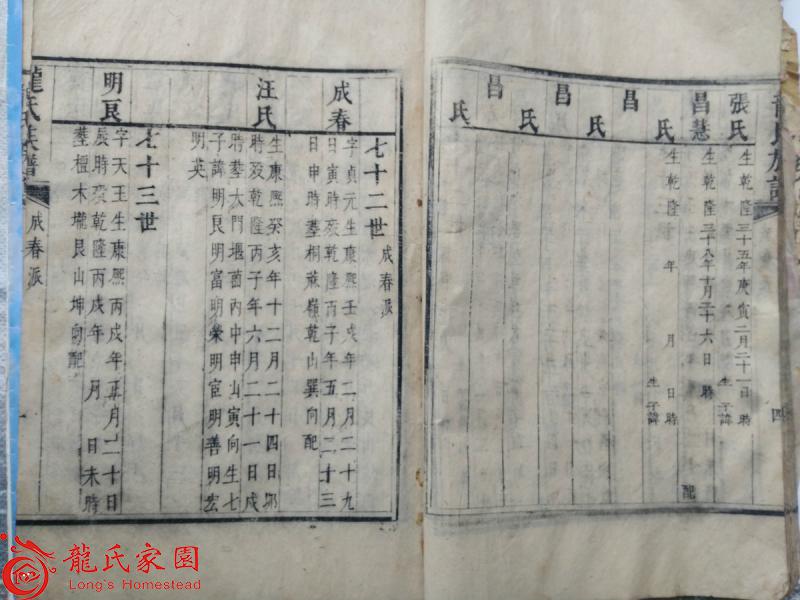 張氏
生乾隆三十五年庚寅二月二十一日 時
生子諱
昌慧
生乾隆三十八年十月二十六日 時
配
氏
生乾隆 年 月 日 時
生子諱
昌
氏
昌
氏
昌
氏
四
七十二世
成春派
成春
字貞元生康熙壬戌年二月二十九
日寅時殁乾隆丙子年五月二十三
日申時塟桐蔴嶺乾山巽向配
汪氏
生康熙癸亥年十二月二十四日卯
時殁乾隆丙子年六月二十一日戌
時塟大門堰菌丙中申山寅向生七
子諱明良明富明榮明宦明善明宏
明英
七十三世
明良
字天王生康熙丙戌年正月二十日
辰時殁乾隆丙戌年 月 日未時
塟檀木壠艮山坤向配
龍氏族譜
成春派
龍氏家園
Long's Homestead